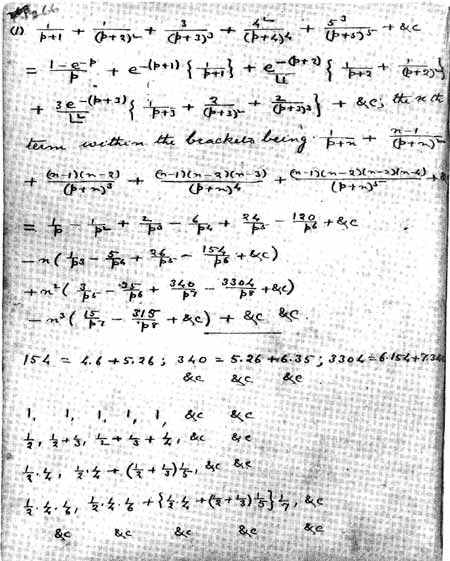 (1) 1/(p+1) + 1/(p+2)² + 3/(p+3)³ + 4²/(p+4)⁴ + 5³/(p+5)⁵ + &c
= (1-e^-p)/p + e^-(p+1) { 1/(p+1) } + e^-(p+2)/⌊2 { 1/(p+2) + 1/(p+2)² }
+ 3e^-(p+3)/⌊2 { 1/(p+3) + 2/(p+3)² + 2/(p+3)³ } + &c; the nth
term within the brackets being 1/(p+n) + (n-1)/(p+n)²
+ (n-1)(n-2)/(p+n)³ + (n-1)(n-2)(n-3)/(p+n)⁴ + (n-1)(n-2)(n-3)(n-4)/(p+n)⁵ + &
= 1/p - 1/p² + 2/p³ - 6/p⁴ + 24/p⁵ - 120/p⁶ + &c
- n ( 1/p³ - 5/p⁴ + 26/p⁵ - 154/p⁶ + &c)
+ n² ( 3/p⁵ - 35/p⁶ + 340/p⁷ - 3304/p⁸ + &c)
- n³ ( 15/p⁷ - 315/p⁸ + &c) + &c &c.
154 = 4.6 + 5.26; 340 = 5.26 + 6.35; 3304 = 6.154 + 7.340
&c &c &c
1, 1, 1, 1, 1, &c &c
1/2, 1/2 + 1/3, 1/2 + 1/3 + 1/4, &c &c
1/2 . 1/4, 1/2 . 1/4 + (1/2 + 1/3) 1/5, &c &c
1/2 . 1/4 . 1/6, 1/2 . 1/4 . 1/6 + { 1/2 . 1/4 + (1/2 + 1/3) 1/5 } 1/7, &c
&c &c &c &c &c